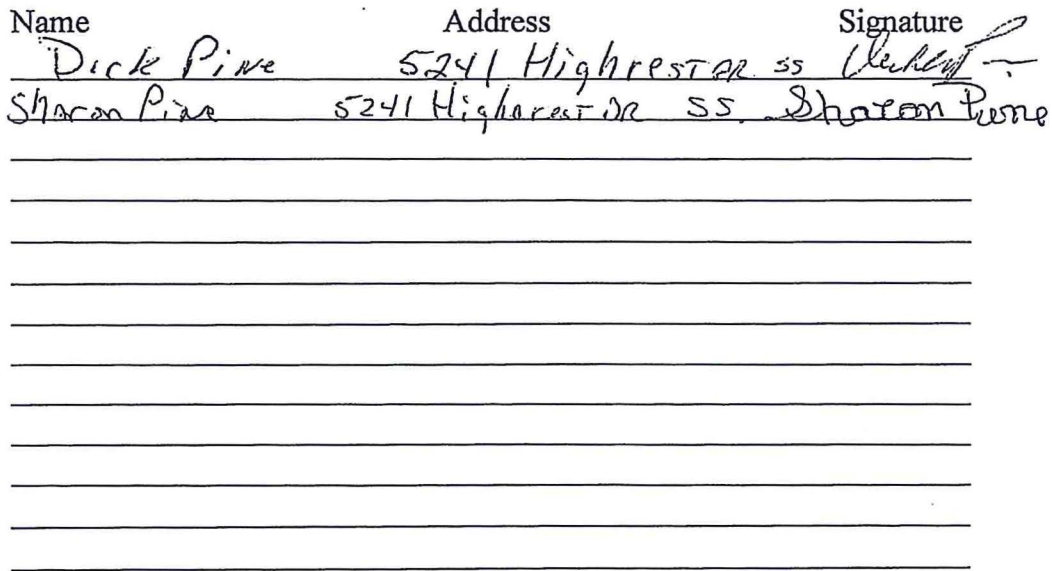 Name Address Signature
Dick Pine 5241 Highrest DR SS
Sharon Pine 5241 Highcrest DR SS. Sharon Pine